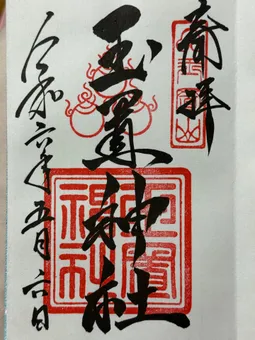 奉拝
玉置神社
玉置神社
令和六年五月六日